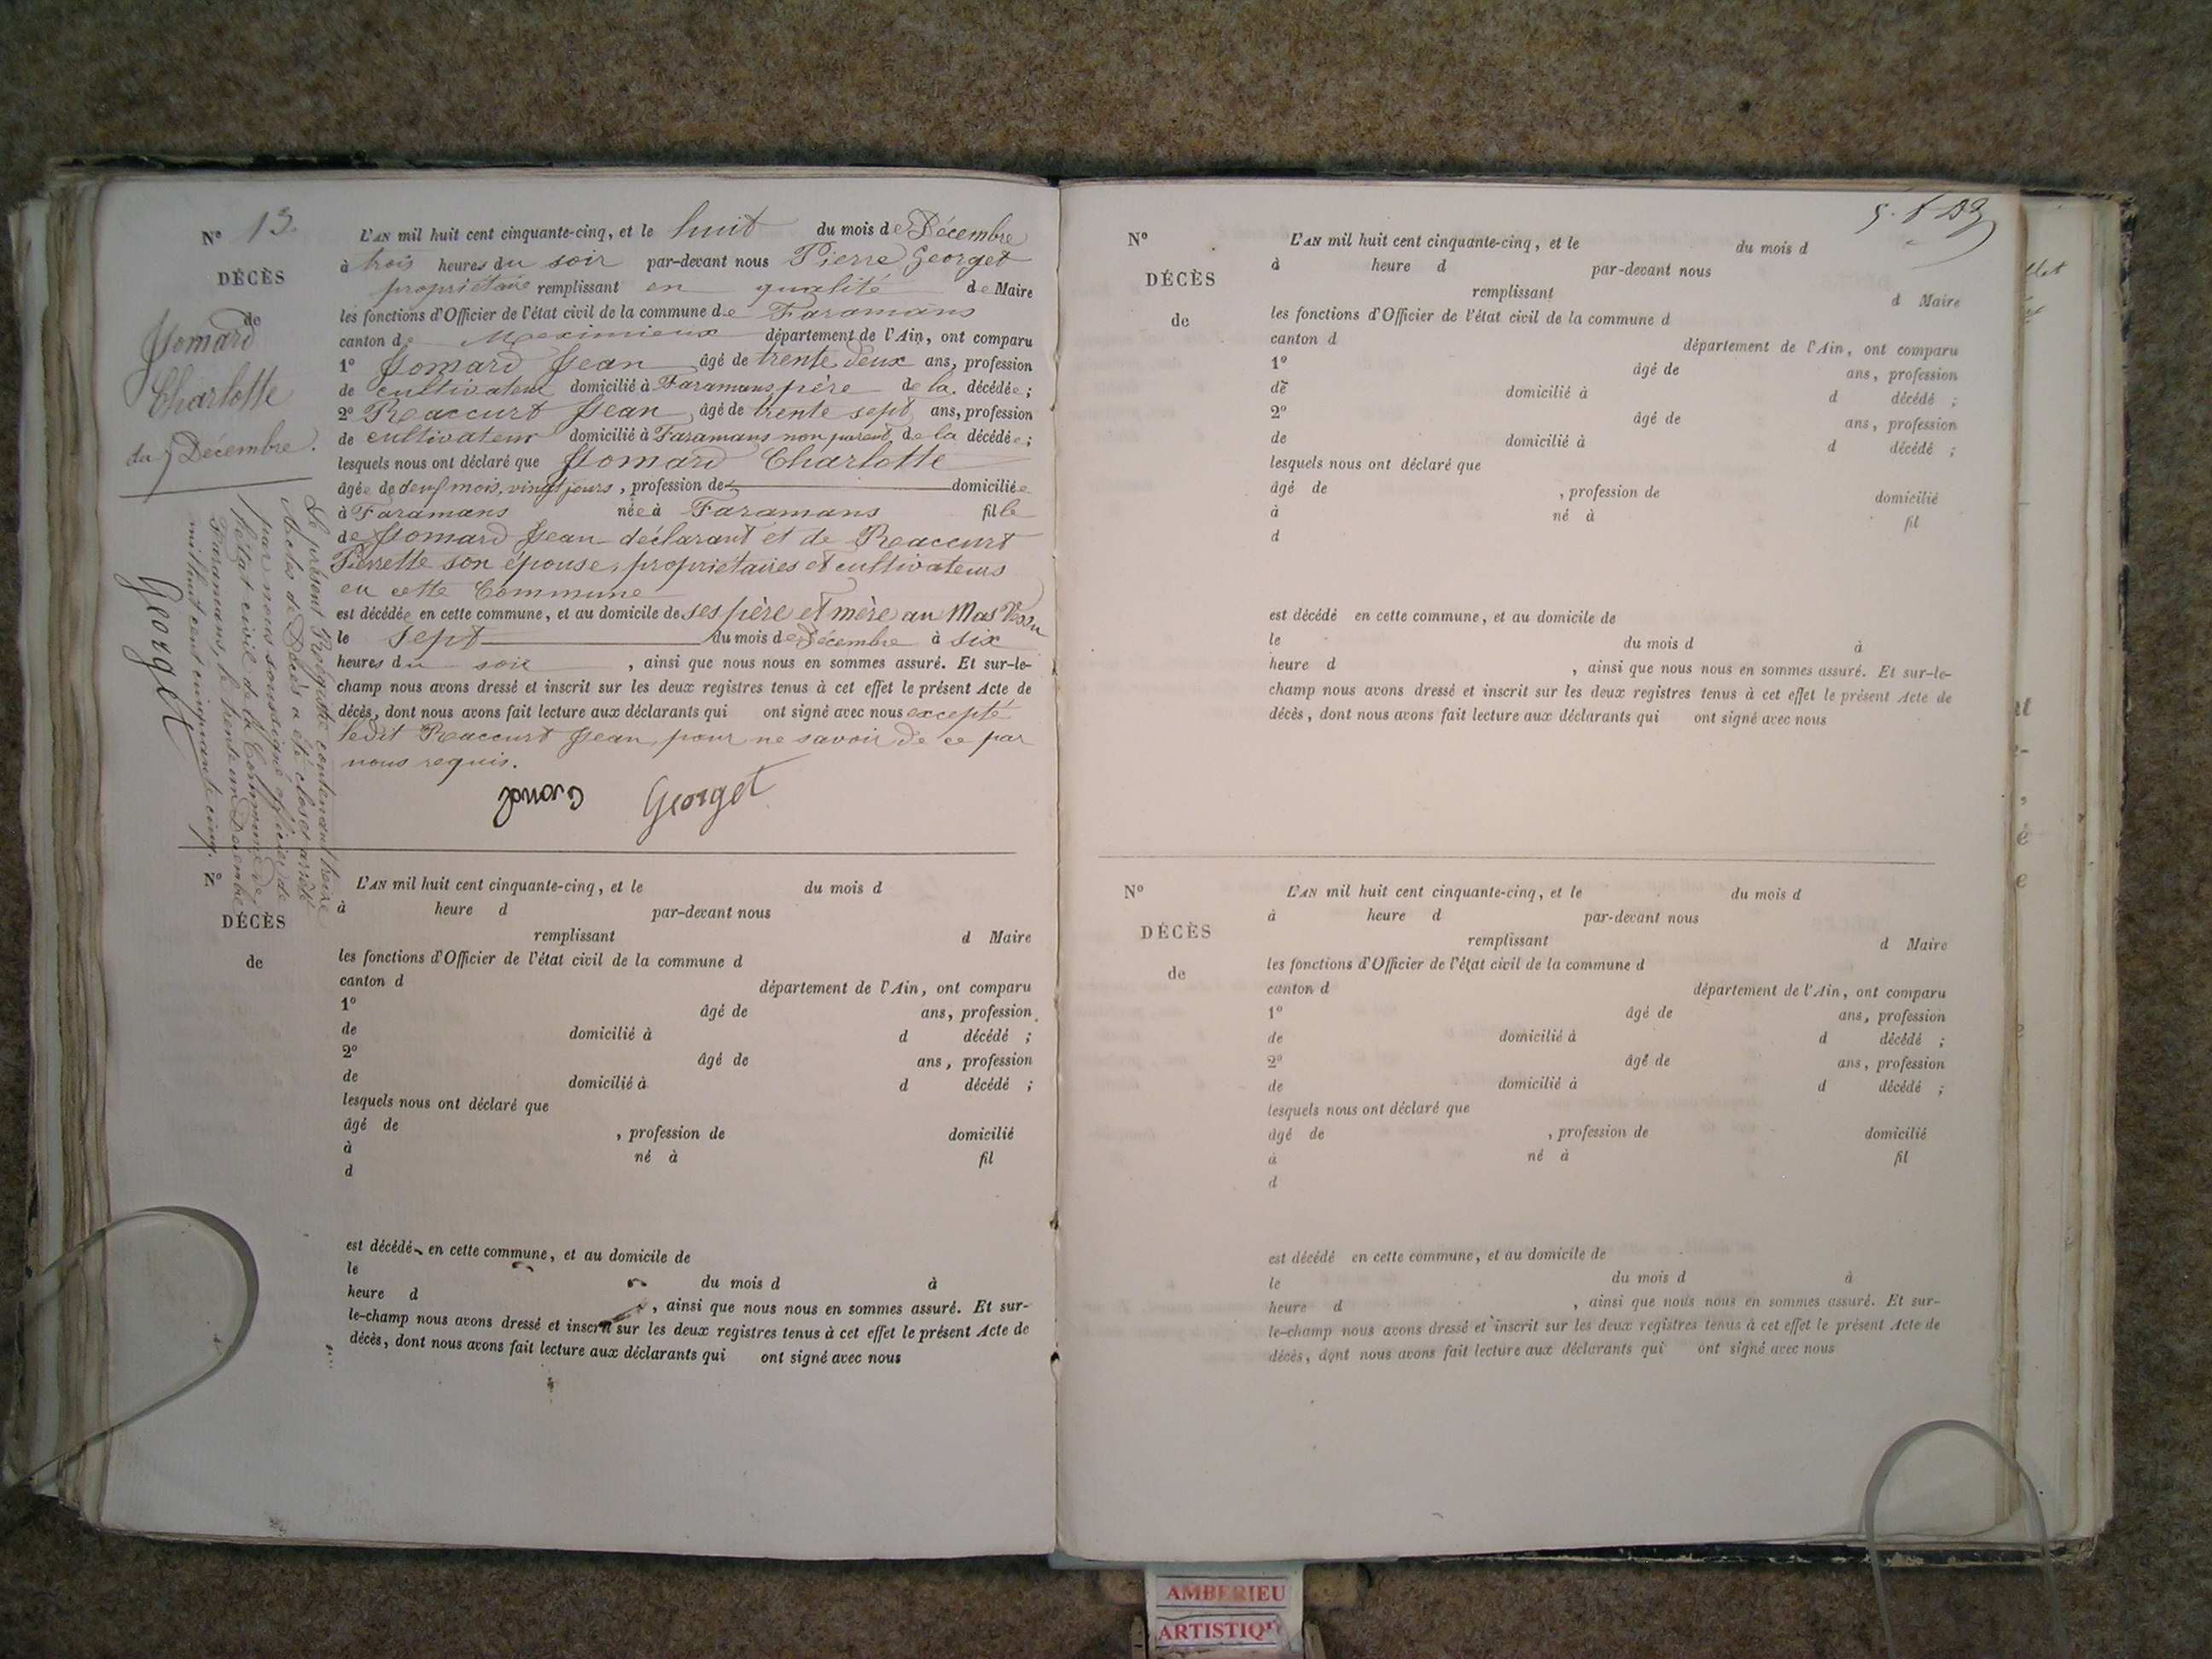 N° 13.
DÉCÈS
de
Jomard
Charlotte
du 7 Décembre.
L'AN mil huit cent cinquante-cinq, et le huit du mois de Décembre
à trois heures du soir par-devant nous Pierre Georget
propriétaire remplissant en qualité de Maire
les fonctions d'Officier de l'état civil de la commune de Faramans
canton de Meximieux département de l'Ain, ont comparu
1° Jomard Jean âgé de trente deux ans, profession
de cultivateur domicilié à Faramans père de la décédée;
2° Reaccurt Jean âgé de trente sept ans, profession
de cultivateur domicilié à Faramans non parent de la décédée;
lesquels nous ont déclaré que Jomard Charlotte
âgée de deux mois, vingt jours, profession de domiciliée
à Faramans née à Faramans fille
de Jomard Jean déclarant et de Reaccurt
Pierrette son épouse, propriétaires et cultivateurs
en cette Commune
est décédée en cette commune, et au domicile de ses père et mère au Mas
le sept du mois de Décembre à six
heures du soir, ainsi que nous nous en sommes assuré. Et sur-le-
champ nous avons dressé et inscrit sur les deux registres tenus à cet effet le présent Acte de
décès, dont nous avons fait lecture aux déclarants qui ont signé avec nous excepté
ledit Reaccurt Jean, pour ne savoir de ce par
nous requis.
Georget
Le présent Registre contenant treize
Actes de Décès a été clos et arrêté
par nous soussigné officier de
l'état civil de la Commune de
Faramans, le trente un Décembre
mil huit cent cinquante cinq.
Georget
N°
DÉCÈS
de
L'AN mil huit cent cinquante-cinq, et le du mois d
à heure d par-devant nous
remplissant d Maire
les fonctions d'Officier de l'état civil de la commune d
canton d département de l'Ain, ont comparu
1° âgé de ans, profession
de domicilié à d décédé ;
2° âgé de ans, profession
de domicilié à d décédé ;
lesquels nous ont déclaré que
âgé de , profession de domicilié
à né à fil
d
est décédé en cette commune, et au domicile de
le du mois d à
heure d , ainsi que nous nous en sommes assuré. Et sur-
le-champ nous avons dressé et inscrit sur les deux registres tenus à cet effet le présent Acte de
décès, dont nous avons fait lecture aux déclarants qui ont signé avec nous
N°
DÉCÈS
de
L'AN mil huit cent cinquante-cinq, et le du mois d
à heure d par-devant nous
remplissant d Maire
les fonctions d'Officier de l'état civil de la commune d
canton d département de l'Ain, ont comparu
1° âgé de ans, profession
de domicilié à d décédé ;
2° âgé de ans, profession
de domicilié à d décédé ;
lesquels nous ont déclaré que
âgé de , profession de domicilié
à né à fil
d
est décédé en cette commune, et au domicile de
le du mois d à
heure d , ainsi que nous nous en sommes assuré. Et sur-le-
champ nous avons dressé et inscrit sur les deux registres tenus à cet effet le présent Acte de
décès, dont nous avons fait lecture aux déclarants qui ont signé avec nous
N°
DÉCÈS
de
L'AN mil huit cent cinquante-cinq, et le du mois d
à heure d par-devant nous
remplissant d Maire
les fonctions d'Officier de l'état civil de la commune d
canton d département de l'Ain, ont comparu
1° âgé de ans, profession
de domicilié à d décédé ;
2° âgé de ans, profession
de domicilié à d décédé ;
lesquels nous ont déclaré que
âgé de , profession de domicilié
à né à fil
d
est décédé en cette commune, et au domicile de
le du mois d à
heure d , ainsi que nous nous en sommes assuré. Et sur-
le-champ nous avons dressé et inscrit sur les deux registres tenus à cet effet le présent Acte de
décès, dont nous avons fait lecture aux déclarants qui ont signé avec nous
AMBERIEU
ARTISTIQ